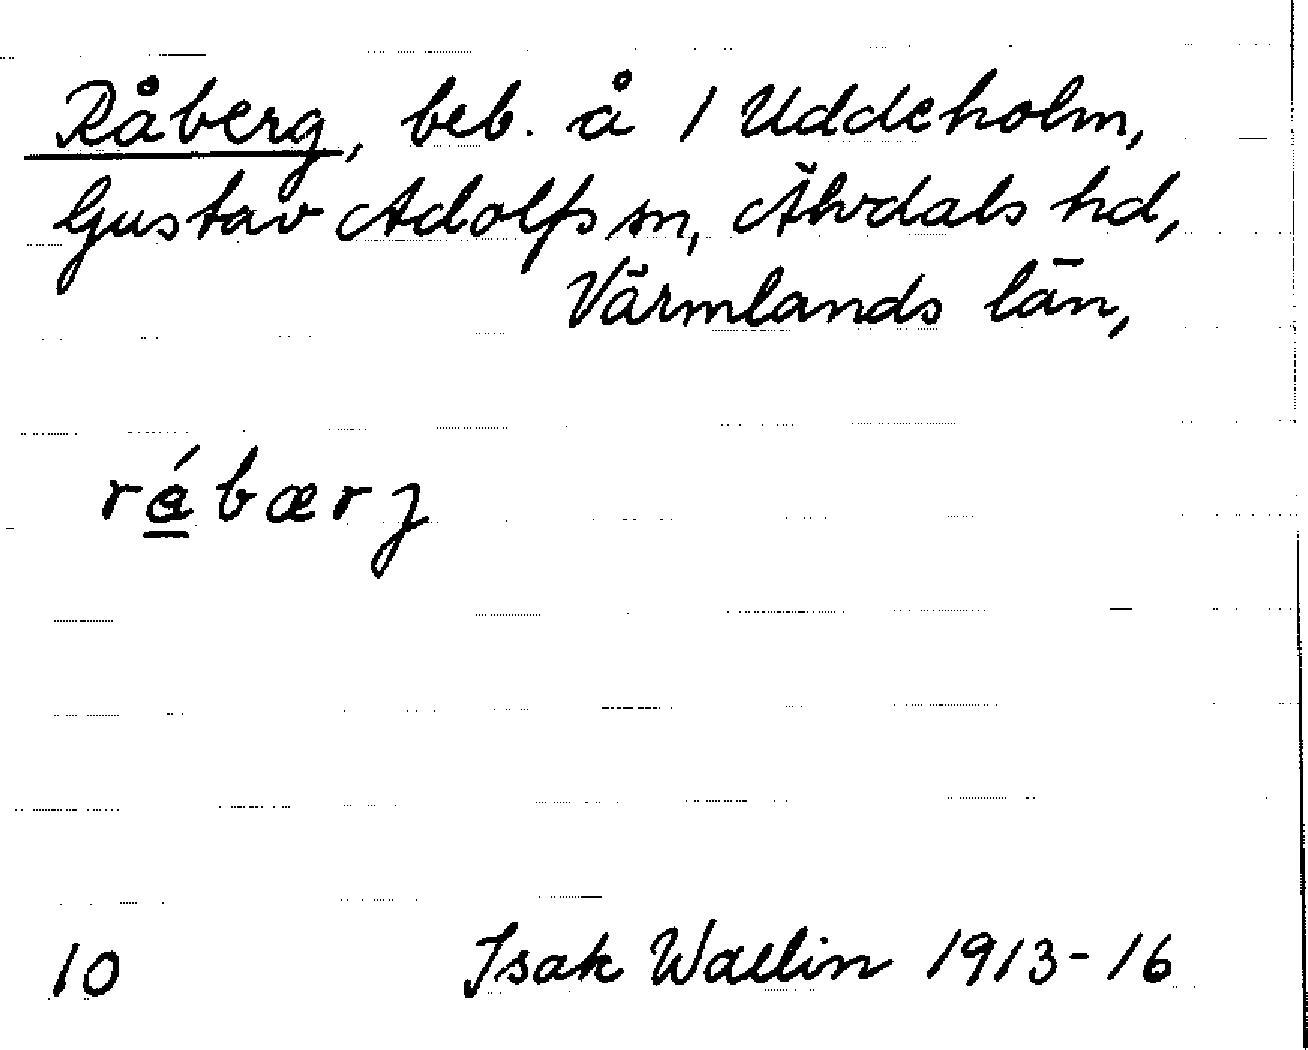 Råberg, beb. å 1 Uddeholm,
Gustav Adolfs sn, Älvdals hd,
Värmlands län,
rábærj
10 Isak Wallin 1913-16